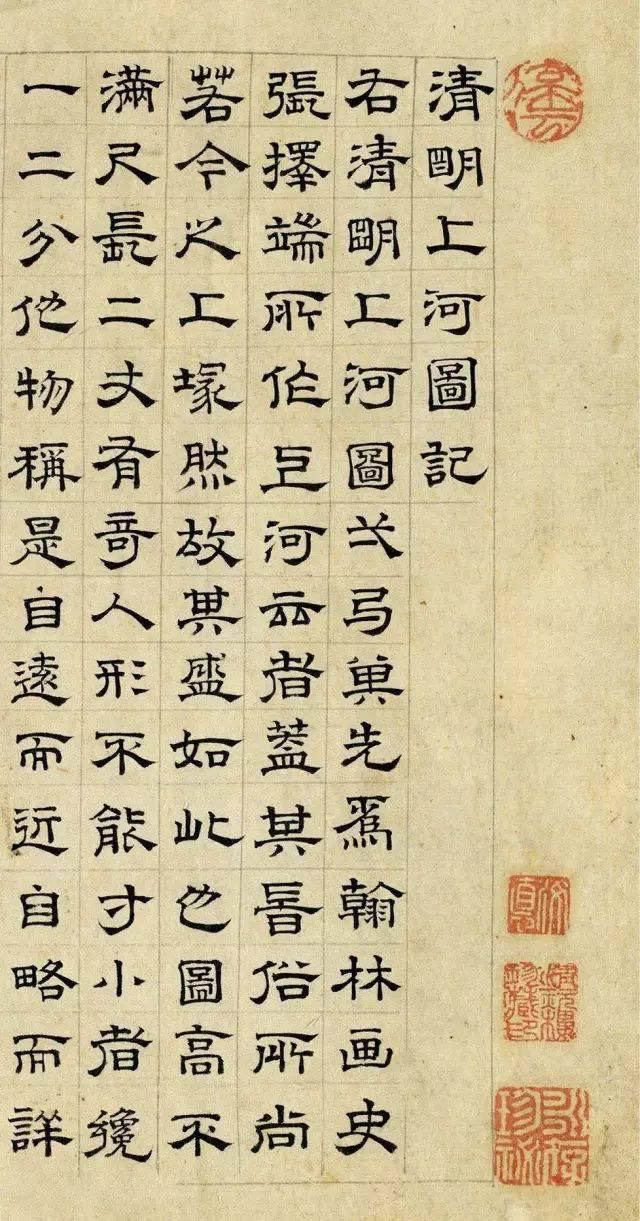 清明上河圖記
右清明上河圖弌弓先爲翰林画史
張擇端所作河云者蓋其旹俗所尚
若今之上塚然故其盛如此也圖高不
滿尺長二丈有奇人形不能寸小者纔
一二分他物稱是自遠而近自略而詳